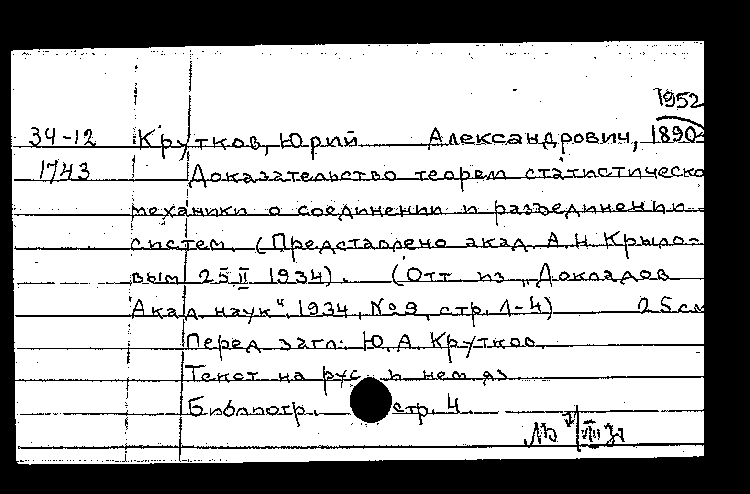 1952
34-12 Крутков, Юрий Александрович, 1890-
1743 Доказательство теорем статистическо
механики о соединении и разъединении
систем. (Представлено акад. А.Н. Крыло-
вым 25 II 1934). (Отт из „Докладов
Акад. наук“, 1934, №9, стр. 1-4) 25см
Перед загл: Ю.А. Крутков.
Текст на рус и нем яз
Библиогр. стр. 4.